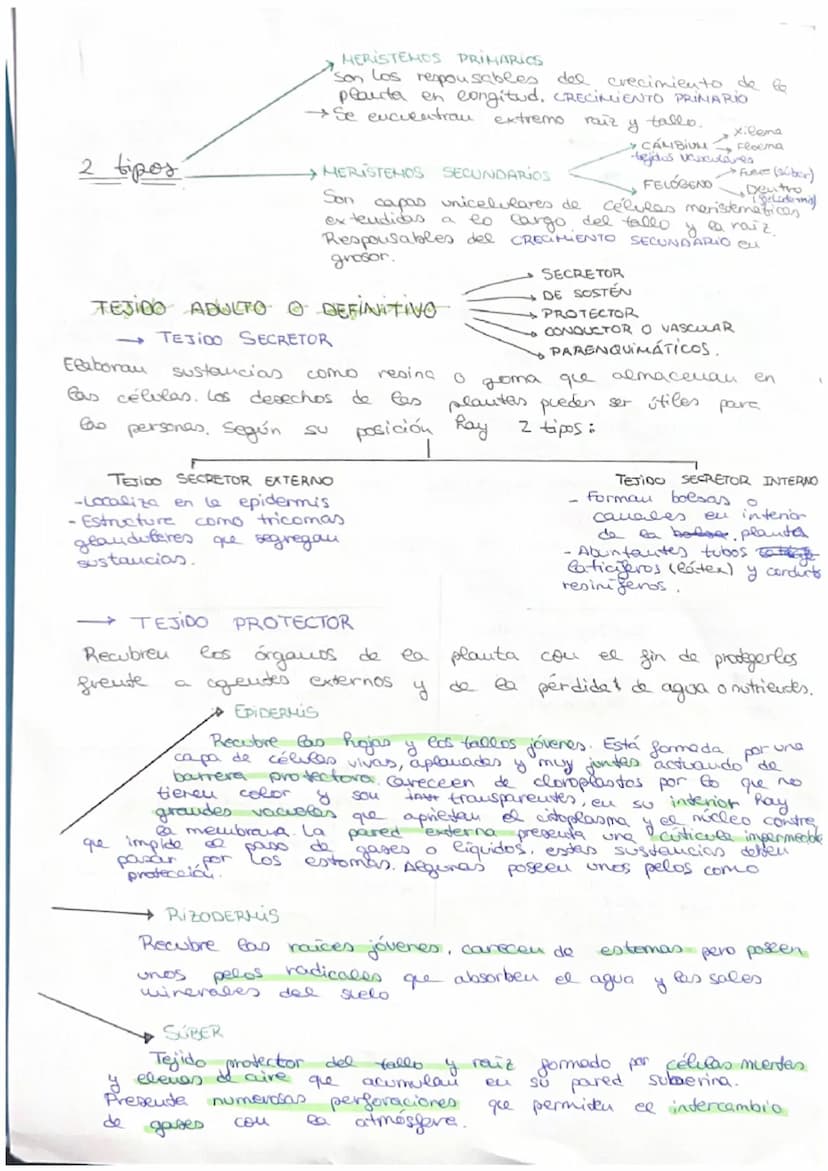 MERISTEMOS PRIMARIOS
Son los responsables del crecimiento de la
planta en longitud. CRECIMIENTO PRIMARIO
→ Se encuentran extremo raiz y tallo.
2 tipos
MERISTEMOS SECUNDARIOS
CÁMBIUM
Xilema
Floema
tejidos vasculares
FELÓGENO
Fuera (súber)
Dentro
(felodermis)
Son capas unicelulares de células meristemáticas
extendidas a lo largo del tallo y la raiz.
Responsables del CRECIMIENTO SECUNDARIO en
grosor.
TEJIDO ADULTO O DEFINITIVO
SECRETOR
DE SOSTÉN
PROTECTOR
CONDUCTOR O VASCULAR
PARENQUIMÁTICOS.
→ TEJIDO SECRETOR
Elaboran sustancias como resina o goma que almacenan en
las células. Los desechos de las plantas pueden ser útiles para
las personas. Según su posición hay 2 tipos:
TEJIDO SECRETOR EXTERNO
- Localiza en la epidermis
- Estructura como tricomas
glandulares que segregan
sustancias.
TEJIDO SECRETOR INTERNO
- Forman bolsas o
canales en interior
de la planta
- Abuntantes tubos
laticíferos (látex) y conductos
resiníferos.
→ TEJIDO PROTECTOR
Recubren los órganos de la planta con el fin de protegerlos
frente a agentes externos y de la pérdida de agua o nutrientes.
EPIDERMIS
Recubre las hojas y los tallos jóvenes. Está formada por una
capa de células vivas, aplanadas y muy juntas actuando de
barrera protectora. Careceen de cloroplastos por lo que no
tienen color y son transparentes, en su interior hay
grandes vacuolas que aprietan el citoplasma y el núcleo contra
la membrana. La pared externa presenta una cutícula impermeable
que impide el paso de gases o líquidos, estas sustancias deben
pasar por los estomas. Algunas poseen unos pelos como
protección.
RIZODERMIS
Recubre las raíces jóvenes, carecen de estomas pero poseen
unos pelos radicales que absorben el agua y las sales
minerales del suelo
SÚBER
Tejido protector del tallo y raiz formado por células muertas
y llenas de aire que acumulan en su pared suberina.
Presenta numerosas perforaciones que permiten el intercambio
de gases con la atmósfera.